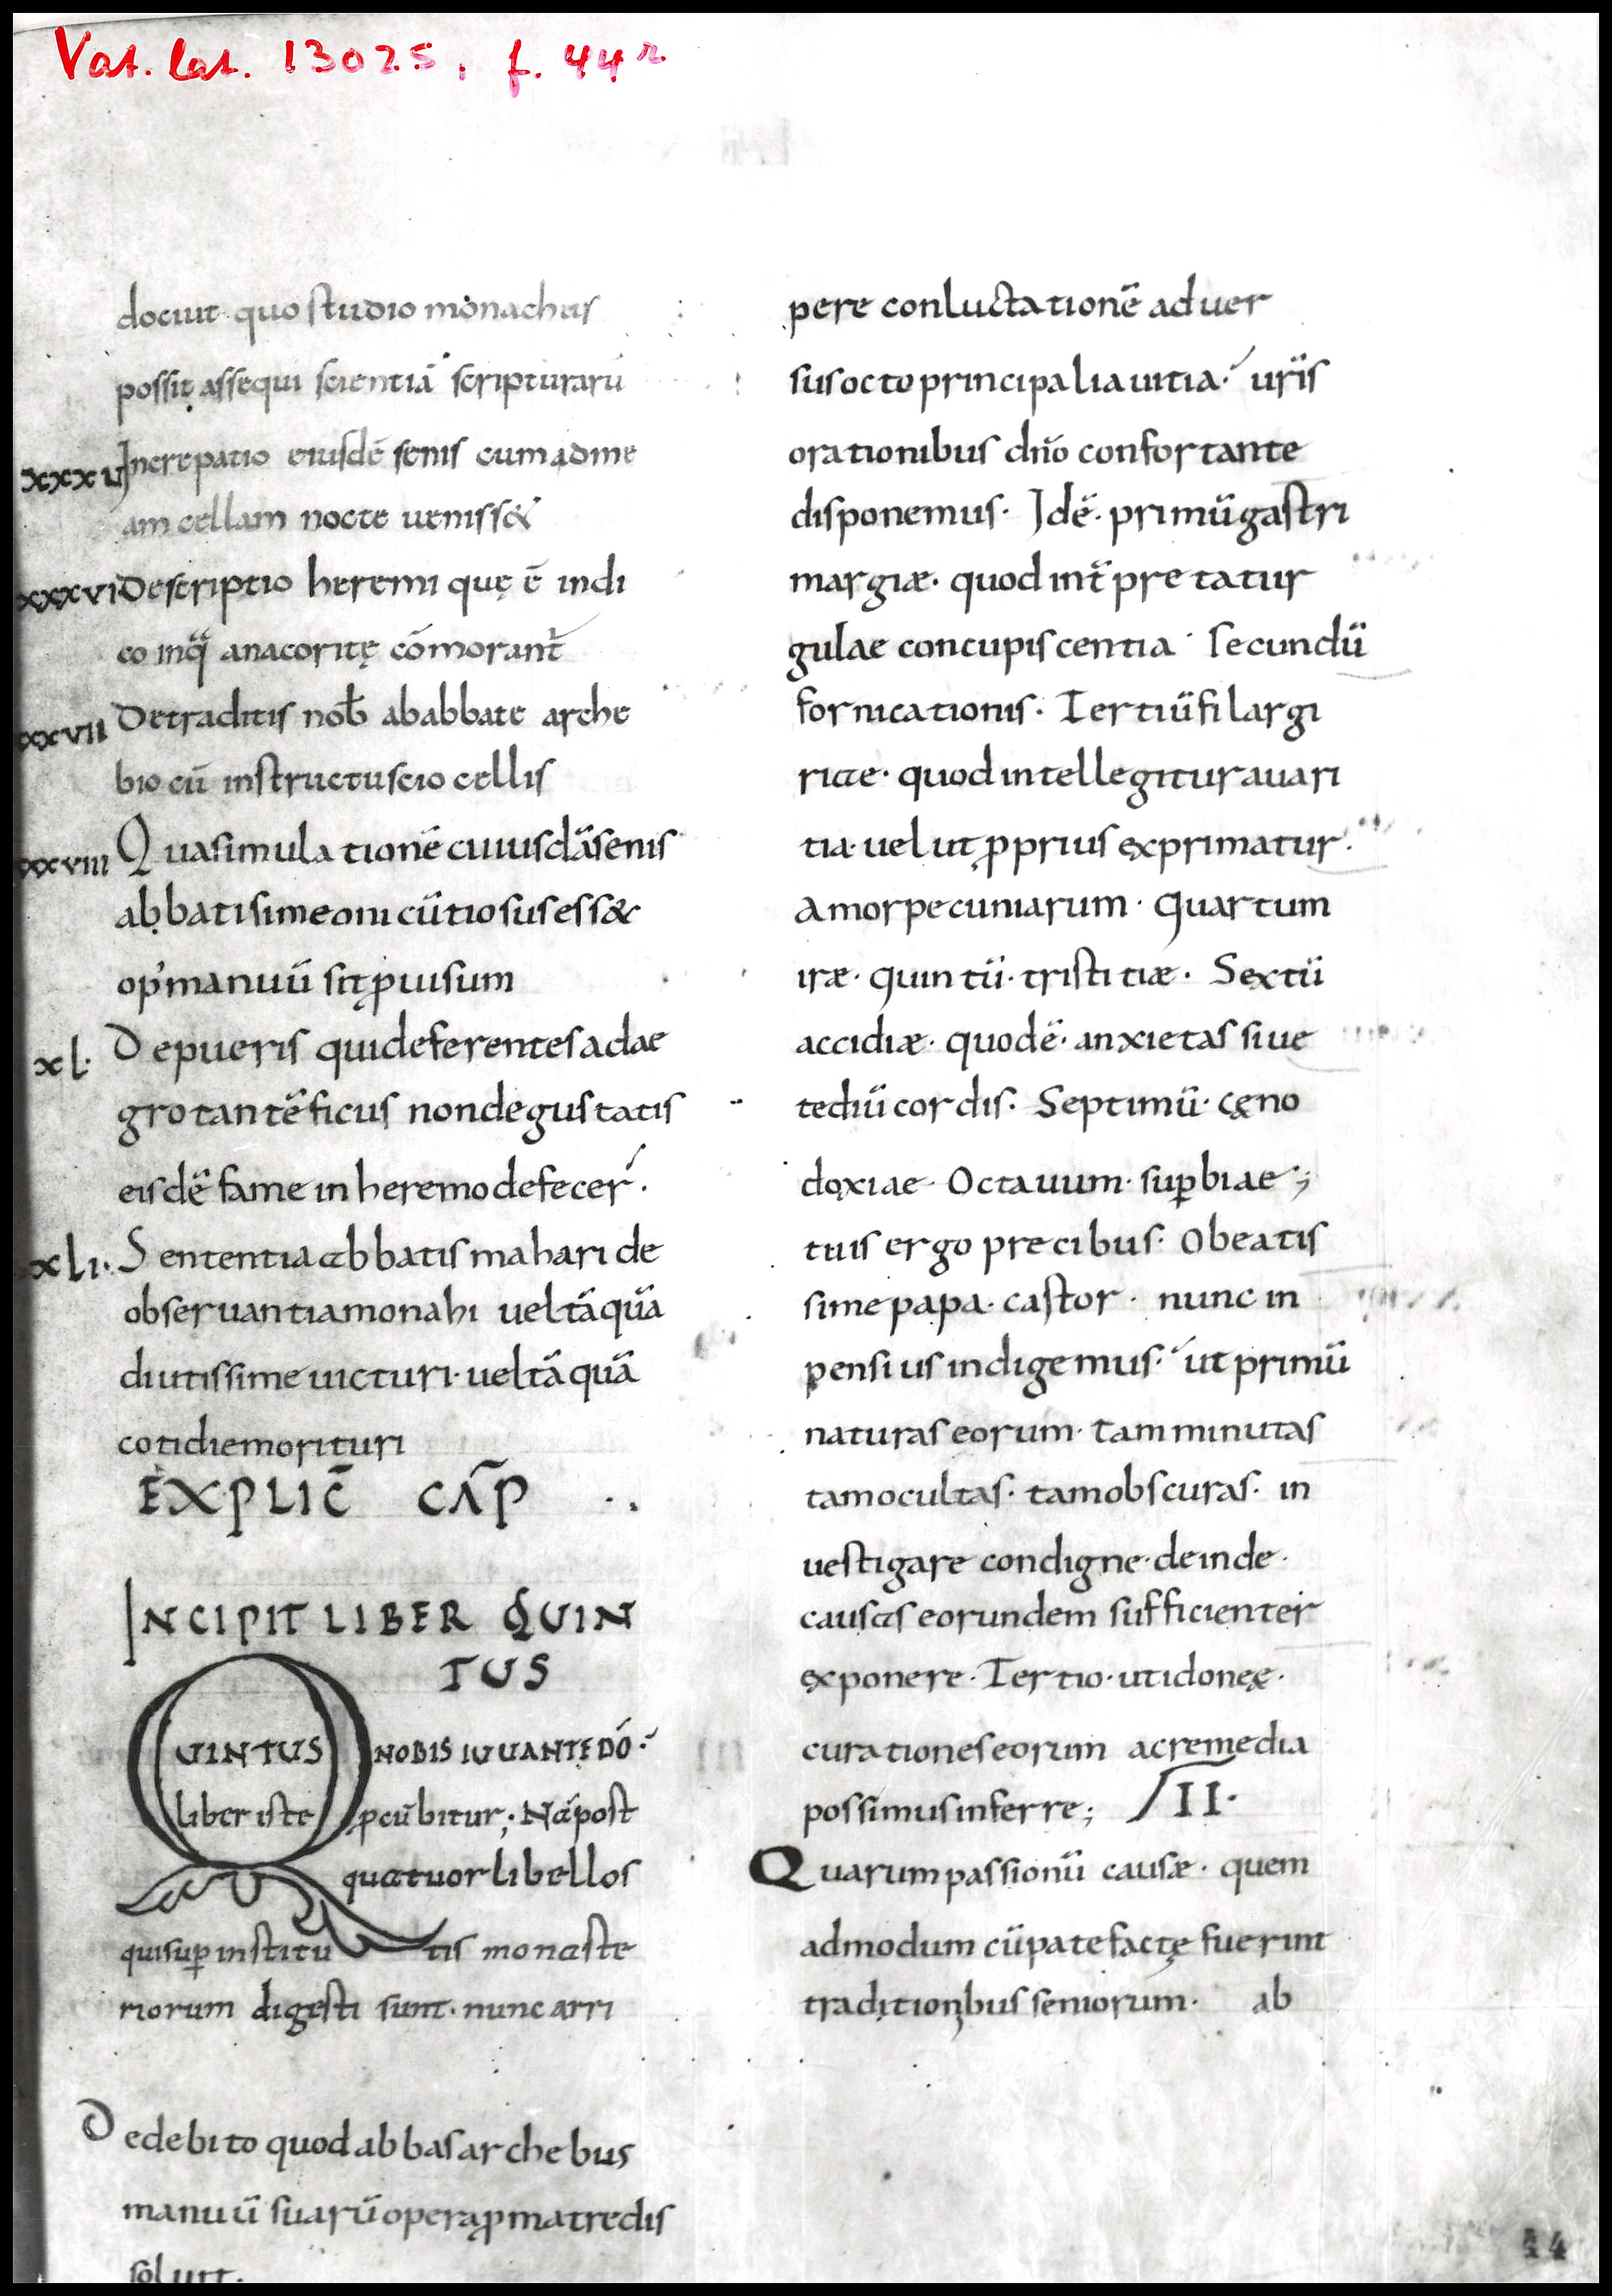 Vat. lat. 13025, f. 44r
docuit quo studio monachus
possit assequi scientiā scripturarū
xxxv Increpatio eiusdē senis cum adme
am cellam nocte ueniss&
xxxvi Descriptio heremi quę ē indi
co inq̄ anacoritę cōmorant̄
xxxvii De traditis nob̄ ababbate arche
bio cū instructu suo cellis
xxxviii Qua simulatione cuiusdā senis
abbati simeoni cū tiosus ess&
op' manuū sit ꝓuisum
xl. De pueris qui deferentes ad ae
grotantē ficus non degustatis
eisdē fame in heremo defecer̄.
xli. Sententia abbatis mahari de
obseruantia monahi uel tāquā
diutissime uicturi· uel tā quā
cotidie morituri
EXPLIC̄ CAP̄
INCIPIT LIBER QUIN
TUS
QUINTUS NOBIS IUUANTE DŌ·
liber iste ꝓcubitur; Nā post
quatuor libellos
qui suꝑ institutis monaste
riorum digesti sunt· nunc arri
De debito quod abbas archebus
manuū suarū opera ꝓ matre dis
soluit.
pere conluctationē aduer
sus octo principalia uitia· ur̄is
orationibus dn̄o confortante
disponemus· Id ē· primū gastri
margiæ· quod int̄pretatur
gulae concupiscentia· secundū
fornicationis· Tertiū filargi
riae· quod intellegitur auari
tia· uel ut ꝓprius exprimatur·
amor pecuniarum· quartum
iræ· quintū· tristitiæ· Sextū
accidiæ· quod ē· anxietas siue
tediū cordis· Septimū· cęno
doxiae· Octauum· suꝑbiae;
tuis ergo precibus· O beatis
sime papa· castor· nunc in
pensius indigemus· ut primū
naturas eorum· tam minutas
tam ocultas· tam obscuras· in
uestigare condigne· deinde·
causas eorundem sufficienter
exponere· Tertio· ut idoneę·
curationes eorum ac remedia
possimus inferre; II·
Quarum passionū causæ· quem
admodum cū patefactę fuerint
traditionibus seniorum· ab
44